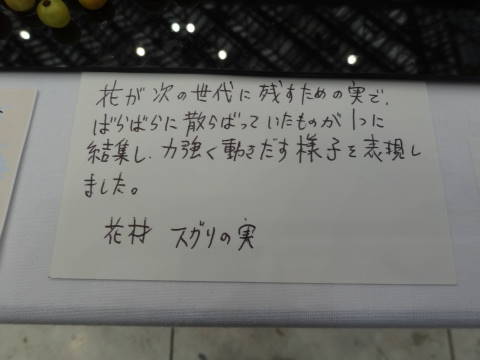 花が次の世代に残すための実で、
ばらばらに散らばっていたものが1つに
結集し、力強く動きだす様子を表現し
ました。
花材 スグリの実